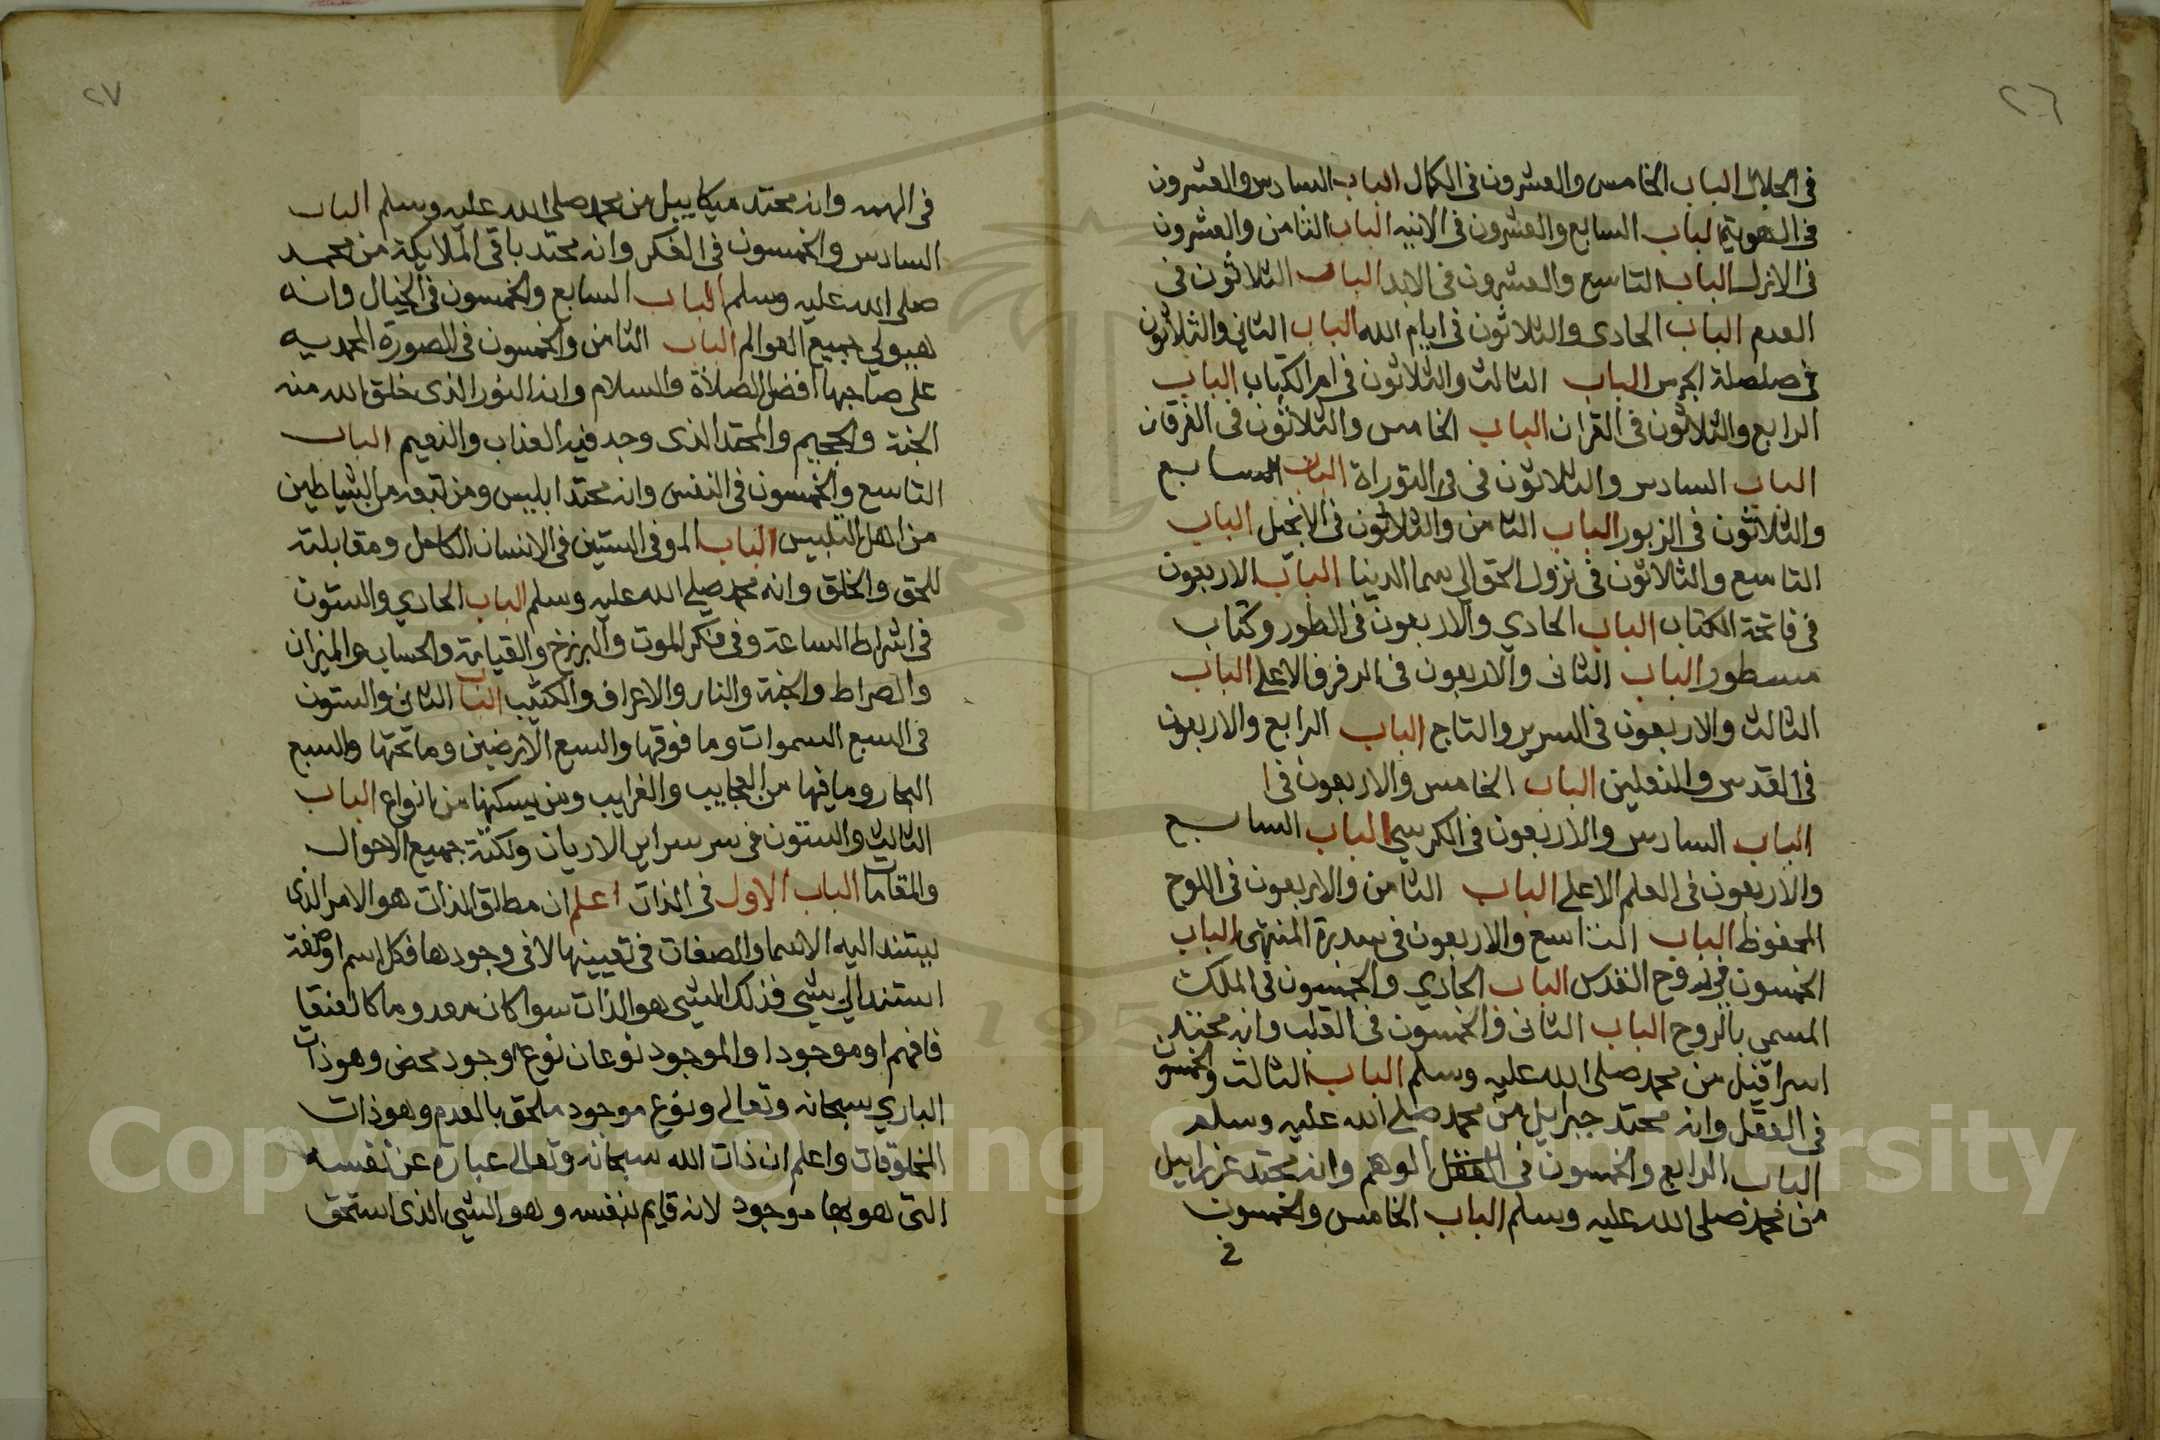 ٢٦
فى الجلال الباب الخامس والعشرون فى الكمال الباب السادس والعشرون
فى الهوية الباب السابع والعشرون فى الانيه الباب الثامن والعشرون
فى الازل الباب التاسع والعشرون فى الابد الباب الثلاثون فى
القدم الباب الحادى والثلاثون فى ايام الله الباب الثانى والثلاثون
فى صلصلة الجرس الباب الثالث والثلاثون فى ام الكتاب الباب
الرابع والثلاثون فى القران الباب الخامس والثلاثون فى الفرقان
الباب السادس والثلاثون فى فى التوراة الباب السابع
والثلاثون فى الزبور الباب الثامن والثلاثون فى الانجيل الباب
التاسع والثلاثون فى نزول الحق الى سما الدنيا الباب الاربعون
فى فاتحة الكتاب الباب الحادي والاربعون فى الطور وكتاب
مسطور الباب الثانى والاربعون فى الرفرف الاعلى الباب
الثالث والاربعون فى السرير والتاج الباب الرابع والاربعون
فى القدس والنعلين الباب الخامس والاربعون فى ا
الباب السادس والاربعون فى الكرسي الباب السابع
والاربعون فى العلم الاعلى الباب الثامن والاربعون فى اللوح
المحفوظ الباب التاسع والاربعون فى سدرة المنتهى الباب
الخمسون فى روح القدس الباب الحادي والخمسون فى الملك
المسمى بالروح الباب الثانى والخمسون فى القلب وانه محتد
اسرافيل من محمد صلى الله عليه وسلم الباب الثالث والخمسون
فى العقل وانه محتد جبرايل من محمد صلى الله عليه وسلم
الباب الرابع والخمسون فى الوهم وانه محتد عزراييل
من محمد صلى الله عليه وسلم الباب الخامس والخمسون
فى
٢٧
فى الهمه وانه محتد ميكاييل من محمد صلى الله عليه وسلم الباب
السادس والخمسون فى الفكر وانه محتد باقى الملايكة من محمد
صلى الله عليه وسلم الباب السابع والخمسون فى الخيال وانه
هيولى جميع العوالم الباب الثامن والخمسون فى الصورة المحمديه
على صاحبها افضل الصلاة والسلام وانه النور الذى خلق الله منه
الجنة والجحيم والمحتد الذى وجد فيه العذاب والنعيم الباب
التاسع والخمسون فى النفس وانه محتد ابليس ومن تبعه من الشياطين
من اهل التلبيس الباب الموفى الستين فى الانسان الكامل ومقابلته
للحق والخلق وانه محمد صلى الله عليه وسلم الباب الحادي والستون
فى اشراط الساعة وفى ذكر الموت والبرزخ والقيامة والحساب والميزان
والصراط والجنة والنار والاعراف والكثيب الباب الثانى والستون
فى السبع السموات وما فوقها والسبع الارضين وما تحتها والسبع
البحار وما فيها من العجايب والغرايب ومن يسكنها من انواع الباب
الثالث والستون فى سر سراير الاديان ونكتة جميع الاحوال
والمقامات الباب الاول فى الذات اعلم ان مطلق الذات هو الامر الذى
يستند اليه الاسما والصفات فى تعيينها لا فى وجودها فكل اسم او صفة
استند الى شي فذلك الشي هو الذات سوا كان معدوما كالعنقا
فافهم او موجودا والموجود نوعان نوع وجود محض وهو ذات
الباري سبحانه وتعالى ونوع موجود ملحق بالعدم وهو ذات
المخلوقات واعلم ان ذات الله سبحانه وتعالى عبارة عن نفسه
التى هو بها موجود لانه قايم بنفسه وهو الشي الذى استحق
Copyright © King Saud University
195